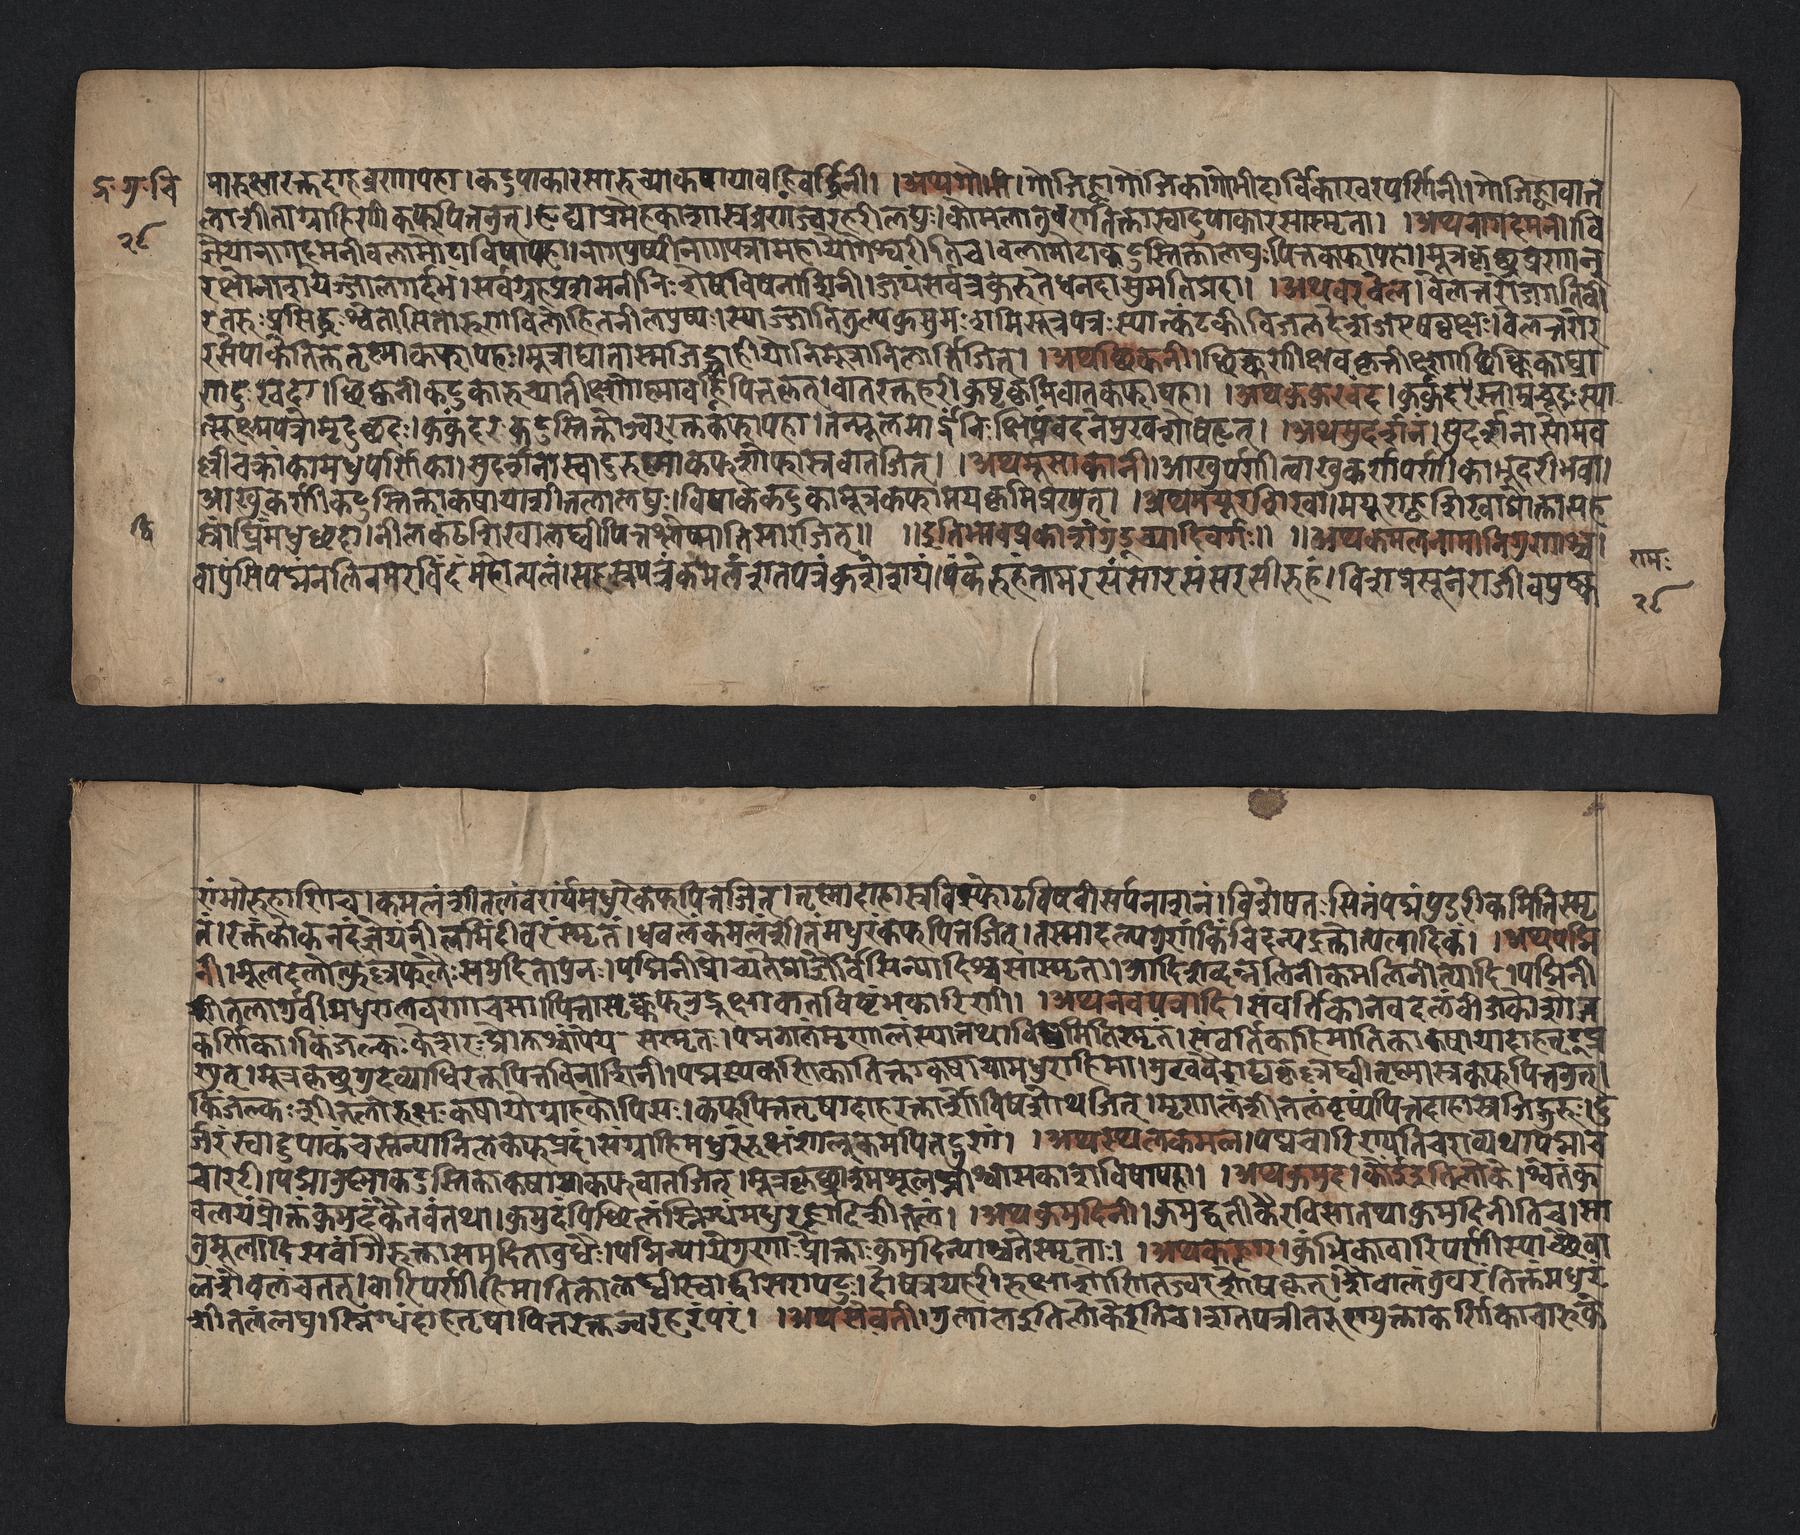 द्र॰गु॰चि
२९
मारुक्षारक्तदाहव्रणापहा।कटुपाकारसारुच्याकषायावह्निवर्द्धिनी। ।अथगोभी।गोजिह्वागोजिकागोभीदार्विकाखरपर्णिनी।गोजिह्वावात
लाशीताग्राहिणीकफपित्तनुत्।हृद्याप्रमेहकाशास्रव्रणज्वरहरीलघुः।कोमलातुवरातिक्तास्वादुपाकारसास्मृता। ।अथनागदमनी।वि
ज्ञेयानागदमनीवलामोटाविषापहा।नागपुष्पीनागपत्रामहायोगेश्वरीतिच।वलामोटाकटुस्तिक्तालघुःपित्तकफापहा।मूत्रकृच्छ्रव्रणान्
रक्षोनाशयेज्जालगर्दभं।सर्वग्रहप्रशमनीनिःशेषविषनाशिनी।जयंसर्वत्रकुरुतेधनदासुमतिप्रदा। ।अथवरवेल।वेलन्तरोजगतिवी
रतरुःप्रसिद्धःश्वेतासितारुणविलोहितनीलपुष्पः।स्याज्जातितुल्यकुसुमःशमिसूक्ष्मपत्रःस्यात्कंटकीविजलदेशजएषवृक्षः।वेलन्तरोर
रसेपाकेतिक्तस्तृष्माकफापहः।मूत्राघाताश्मजिद्ग्राहीयोनिमूत्रानिलार्त्तिजित्। ।अथछिक्कनी।छिक्कणीक्षवकृत्तीक्ष्णाछिक्किकाघ्रा
णदुःखदा।छिक्कनीकटुकारुच्यातीक्ष्णोष्मावह्निपित्तकृत्।वातरक्तहरीकुष्ठकृमिवातकफापहा। ।अथकुकुरवंद।कुकुंदरस्ताम्रचूडःस्या
त्सूक्ष्मपत्रोमृदुछदः।कुकुंदरःकटुस्तिक्तोज्वररक्तकफापहा।तन्मूलमार्द्रंनिःक्षिप्तंवदनेमुखशोषहृत्। ।अथसुदर्शनं।सुदर्शनासोमव
ल्लीचक्राकामधुपर्णिका।सुदर्शनास्वादुरुष्माकफशोफास्रवातजित्। ।अथमूसाकानी।आखुपर्णीत्वाखुकर्णीपर्णीकाभूदरीभवा।
आखुकर्णीकटुस्तिक्ताकषायाशीतलालघुः।विपाकेकटुकामूत्रकफामयकृमिप्रणुत्। ।अथमयूरशिखा।मयूराह्वशिखाप्रोक्तासह
स्रांघ्रिर्मधुछदा।नीलकंठशिखालघ्वीपित्तश्लेष्मातिसारजित्॥ ॥इतिभावप्रकाशेगुडूच्यादिवर्गः॥ ॥अथकमलनामानिगुणाश्च।
वापुंसिपद्मनलिनमरविंदंमहोत्पलं।सहस्रपत्रंकमलंशतपत्रंकुशेशयं।पंकेरुहंतामरसंसारसंसरसीरुहं।विशप्रसूनराजीवपुष्क
रामः
२९
रांभोरुहाणिच।कमलंशीतलंवर्ण्यंमधुरंकफपित्तजित्।तृष्मादाहास्रविस्फोटविषवीसर्पनाशनं।विशेषतःसितंपद्मंपुंडरीकमितिस्मृ
तं।रक्तंकोकनदंज्ञेयंनीलमिंदीवरंस्मृतं।धवलंकमलंशीतंमधुरंकफपित्तजित्।तस्मादल्पगुणंकिंचिदन्यद्रक्तोत्पलादिकं। ।अथपद्मि
नी।मूलदलोत्फुल्लफलैःसमुदितापुनः।पद्मिनीप्रोच्यतेप्राज्ञैर्विसिन्यादिश्चसास्मृता।आदिशब्दान्नलिनीकमलिनीत्यादि।पद्मिनी
शीतलागुर्वीमधुरालवणाचसा।पित्तासृक्कफनुद्रूक्ष्णवातविष्टंभकारिणी। ।अथनवपत्रादि।संवर्तिकानवदलंवीजकोशाज
कर्णिका।किंजल्कःकेशरःप्रोक्तोमकरंदस्मृतः।पद्मनालंमृणालंस्यात्तथाविसमितिस्मृतं।संवर्तिकाहिमातिक्ताकषायादाहतृट्प्र
णुत्।मूत्रकृच्छ्रगुदव्याधिरक्तपित्तविनाशिनी।पद्मस्यकर्णिकातिक्ताकषायामधुराहिमा।मुखवैशद्यकृल्लघ्वीतृष्मास्रकफपित्तनुत्।
किंजल्कःशीतलोरुक्षःकषायोग्राहकोपिसः।कफपित्ततृषादाहरक्तार्शोविषशोथजित्।मृणालंशीतलंवृष्यंपित्तदाहास्रजिद्गुरुः।दु
र्जरंस्वादुपाकंचस्तन्यानिलकफप्रदं।संग्राहिमधुरंरुक्षंशालूकमपितद्गुणं। ।अथस्थलकमल।पद्मचारिण्यतिचराव्यथापद्माच
चारटी।पद्मानुष्माकटुस्तिक्ताकषायाकफवातजित्।मूत्रकृच्छ्राश्मशूलघ्नीश्वासकाशविषापहा। ।अथकुमुद।कोंईइतिलोके।श्वेतकु
वलयंप्रोक्तंकुमुदंकैरवंतथा।कुमुदंपिछिलंस्निग्धंमधुरंह्लादिशीतलं। ।अथकुमुदिनी।कुमुद्वतीकैरविणीतथाकुमुदिनीतिच।सा
तुमूलादिसर्वांगैरुक्तासमुदिताबुधैः।पद्मिन्यायेगुणाःप्रोक्ताःकुमुदिन्याश्चतेस्मृताः। ।अथकह्लार।कुंभिकावारिपर्णीस्याच्छैवा
लंशैवलंचतत्।वारिपर्णीहिमातिक्तालघ्वीस्वाद्वीसरापटुः।दोषत्रयहरीरुक्षाशोणितज्वरशोषकृत्।शैवालंतुवरंतिक्तंमधुरं
शीतलंलघु।स्निग्धंदाहतृषापित्तरक्तज्वरहरंपरं। ।अथसेवती।गुलालइतिलोकेइतिच।शतपत्रीतरुण्युक्ताकर्णिकाचारुके